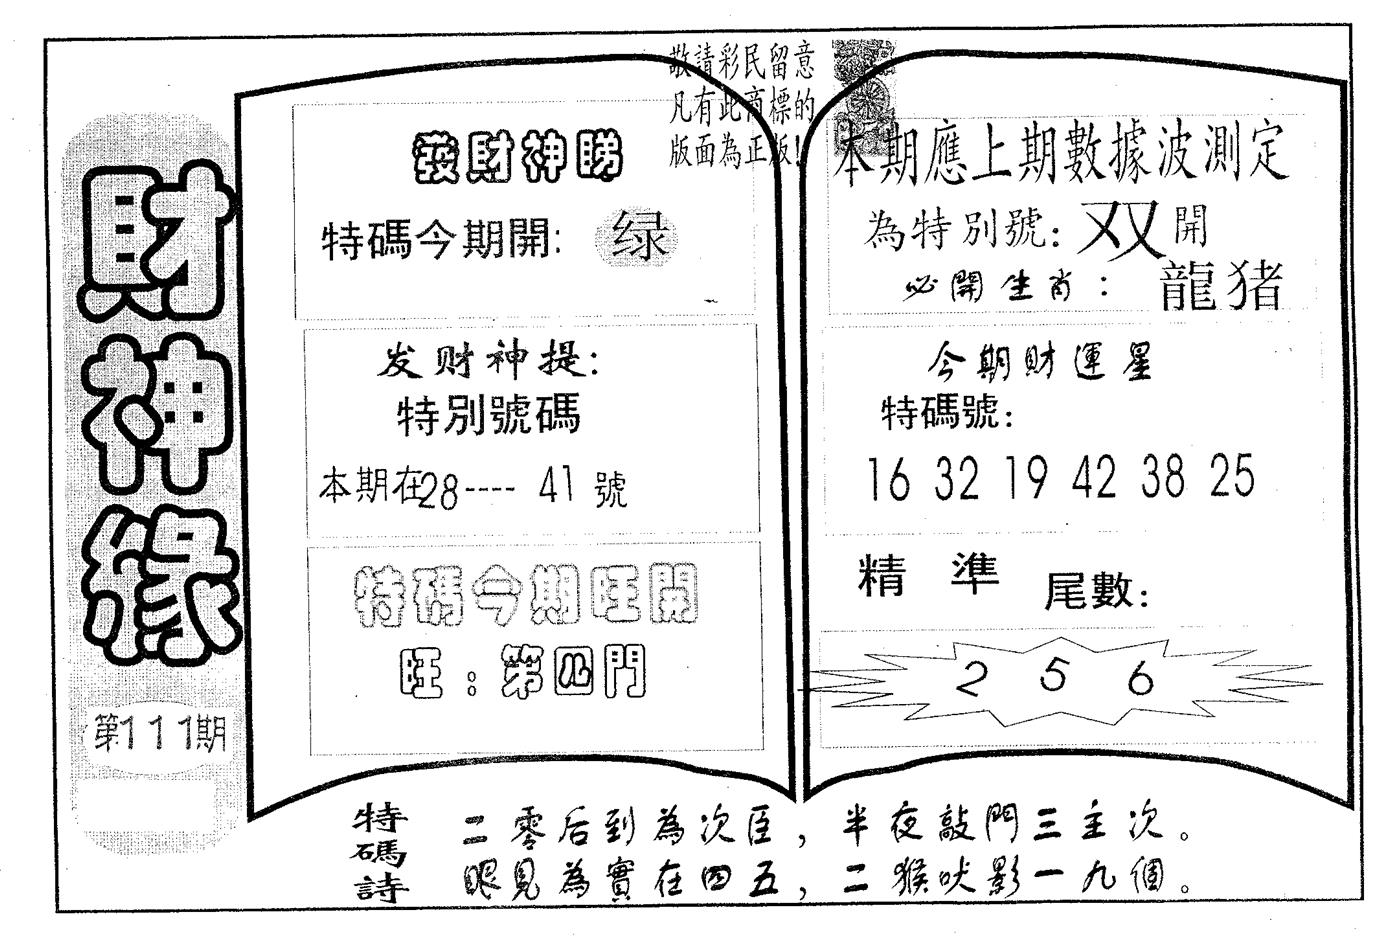 財神緣
第111期
敬請彩民留意
凡有此商標的
版面為正版!
發財神睇
特碼今期開: 绿
发财神提:
特別號碼
本期在28---- 41 號
特碼今期旺開
旺: 第四門
本期應上期數據波測定
為特別號: 双 開
必開生肖: 龍猪
今期財運星
特碼號:
16 32 19 42 38 25
精 準 尾數:
2 5 6
特碼詩
二零后到為次臣，半夜敲門三主次。
眼見為實在四五，二猴吠影一九個。